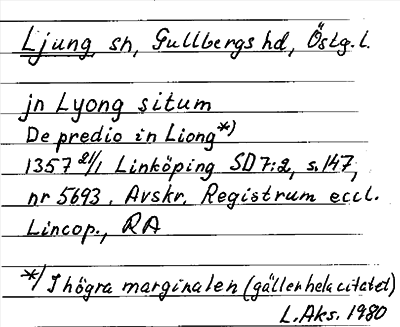 Ljung sn, Gullbergs hd, Östg. l.
jn Lyong situm
De predio in Liong*)
1357 21/1 Linköping SD 7:2, s. 147,
nr 5693. Avskr. Registrum eccl.
Lincop., RA
*/ I högra marginalen (gäller hela citatet)
L. Aks. 1980